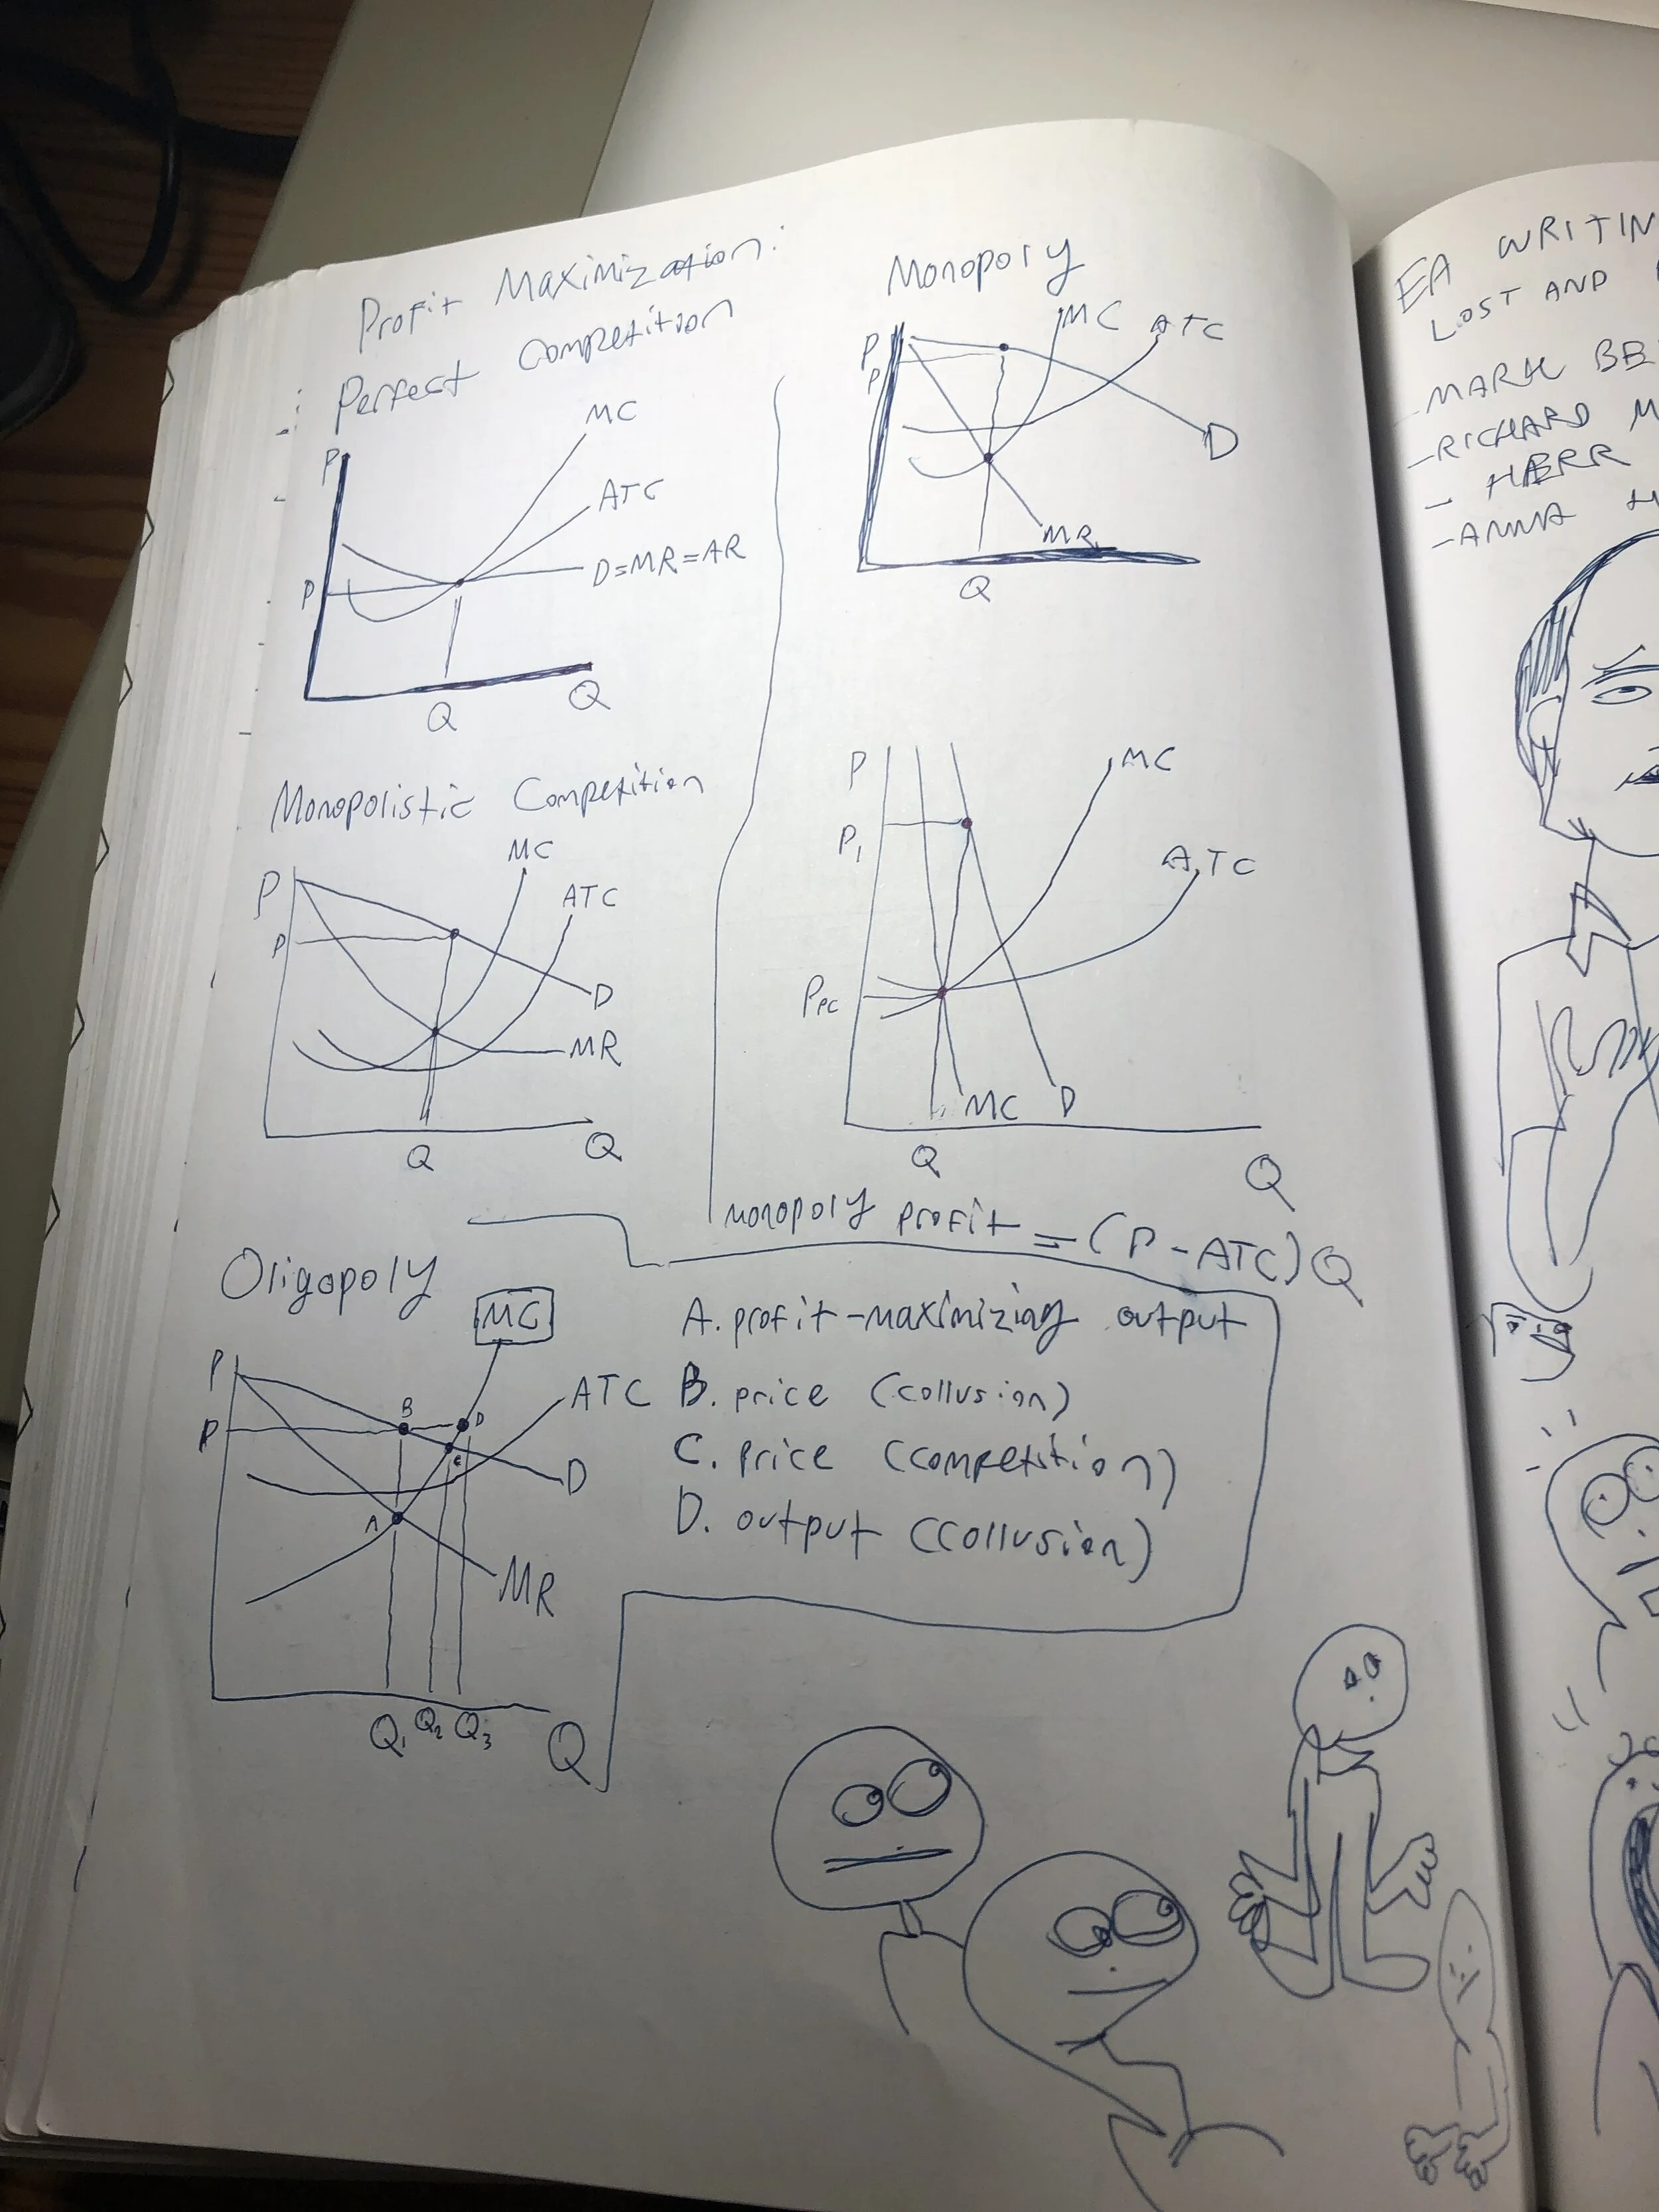 Profit Maximization:
Perfect Competition
P
MC
ATC
D=MR=AR
P
Q
Q
Monopoly
P
P
MC
ATC
D
MR
Q
Monopolistic Competition
P
P
MC
ATC
D
MR
Q
Q
P
P₁
MC
ATC
Ppc
MC
D
Q
Q
monopoly profit = (P - ATC) Q
Oligopoly
MC
P
P
B
D
C
A
ATC
D
MR
Q₁
Q₂
Q₃
Q
A. profit-maximizing output
B. price (collusion)
C. price (competition)
D. output (collusion)
EA WRITIN
LOST AND
- MARK BE
- RICHARD M
- HERR
- ANNA H